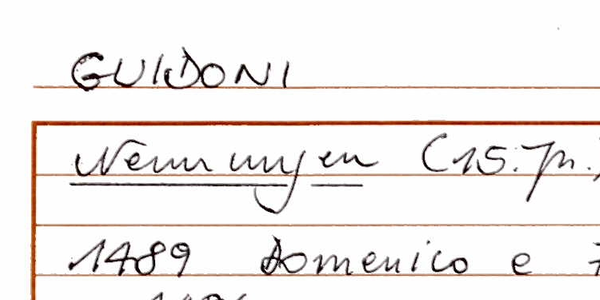 GUIDONI
Nennungen (15. Jh.)
1489 Domenico e